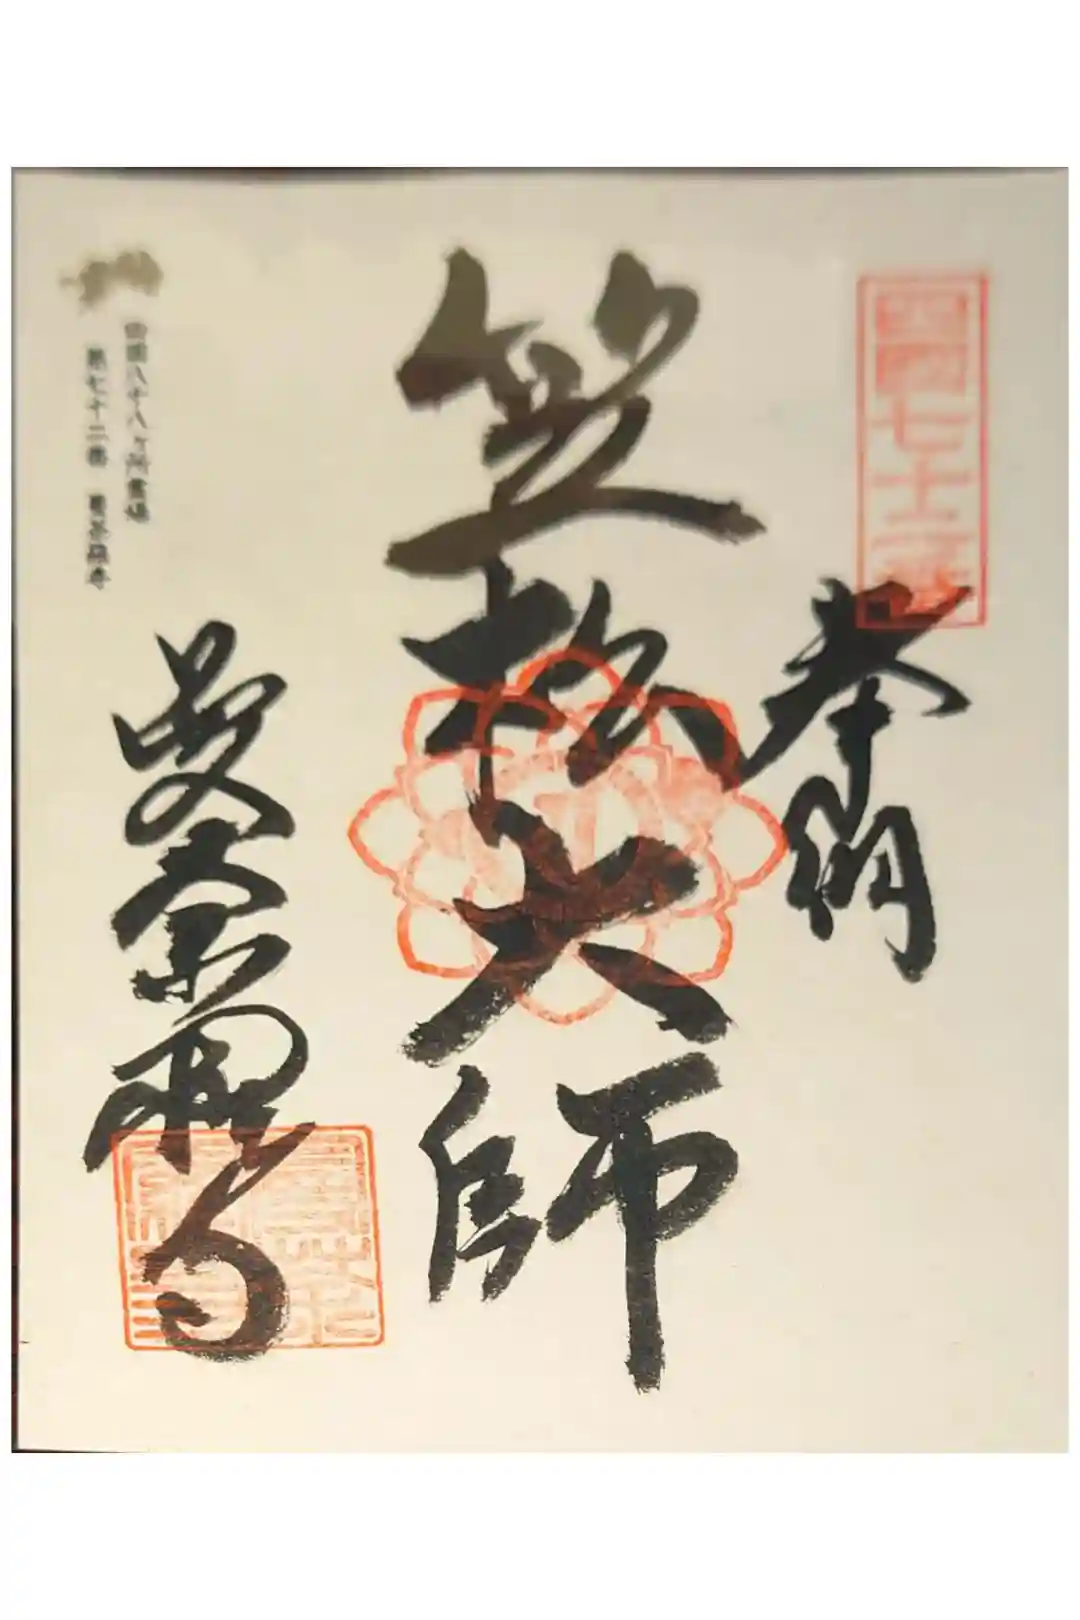 四国七十二番
奉納
笠松大師
四国八十八ヶ所霊場
第七十二番 曼荼羅寺
曼荼羅寺